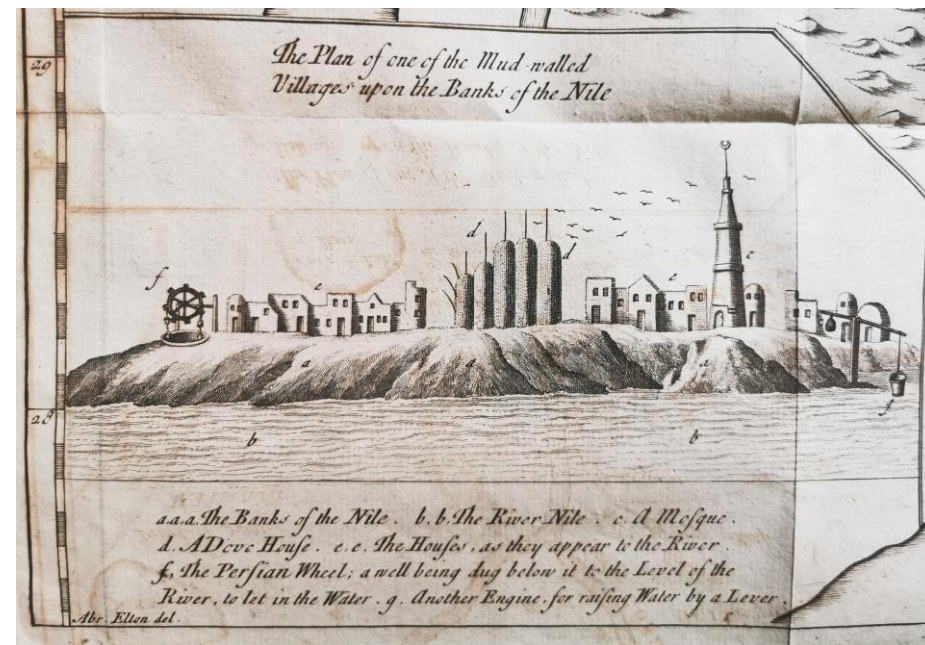 29
The Plan of one of the Mud-walled
Villages upon the Banks of the Nile
d
d
f
e
e
c
a
a
a
28
f
b
b
a.a.a. The Banks of the Nile. b.b. The River Nile. c. A Mosque.
d. A Dove House. e.e. The Houses, as they appear to the River.
f, The Persian Wheel; a well being dug below it to the Level of the
River, to let in the Water. g. Another Engine, for raising Water by a Lever.
Abr. Elton del.